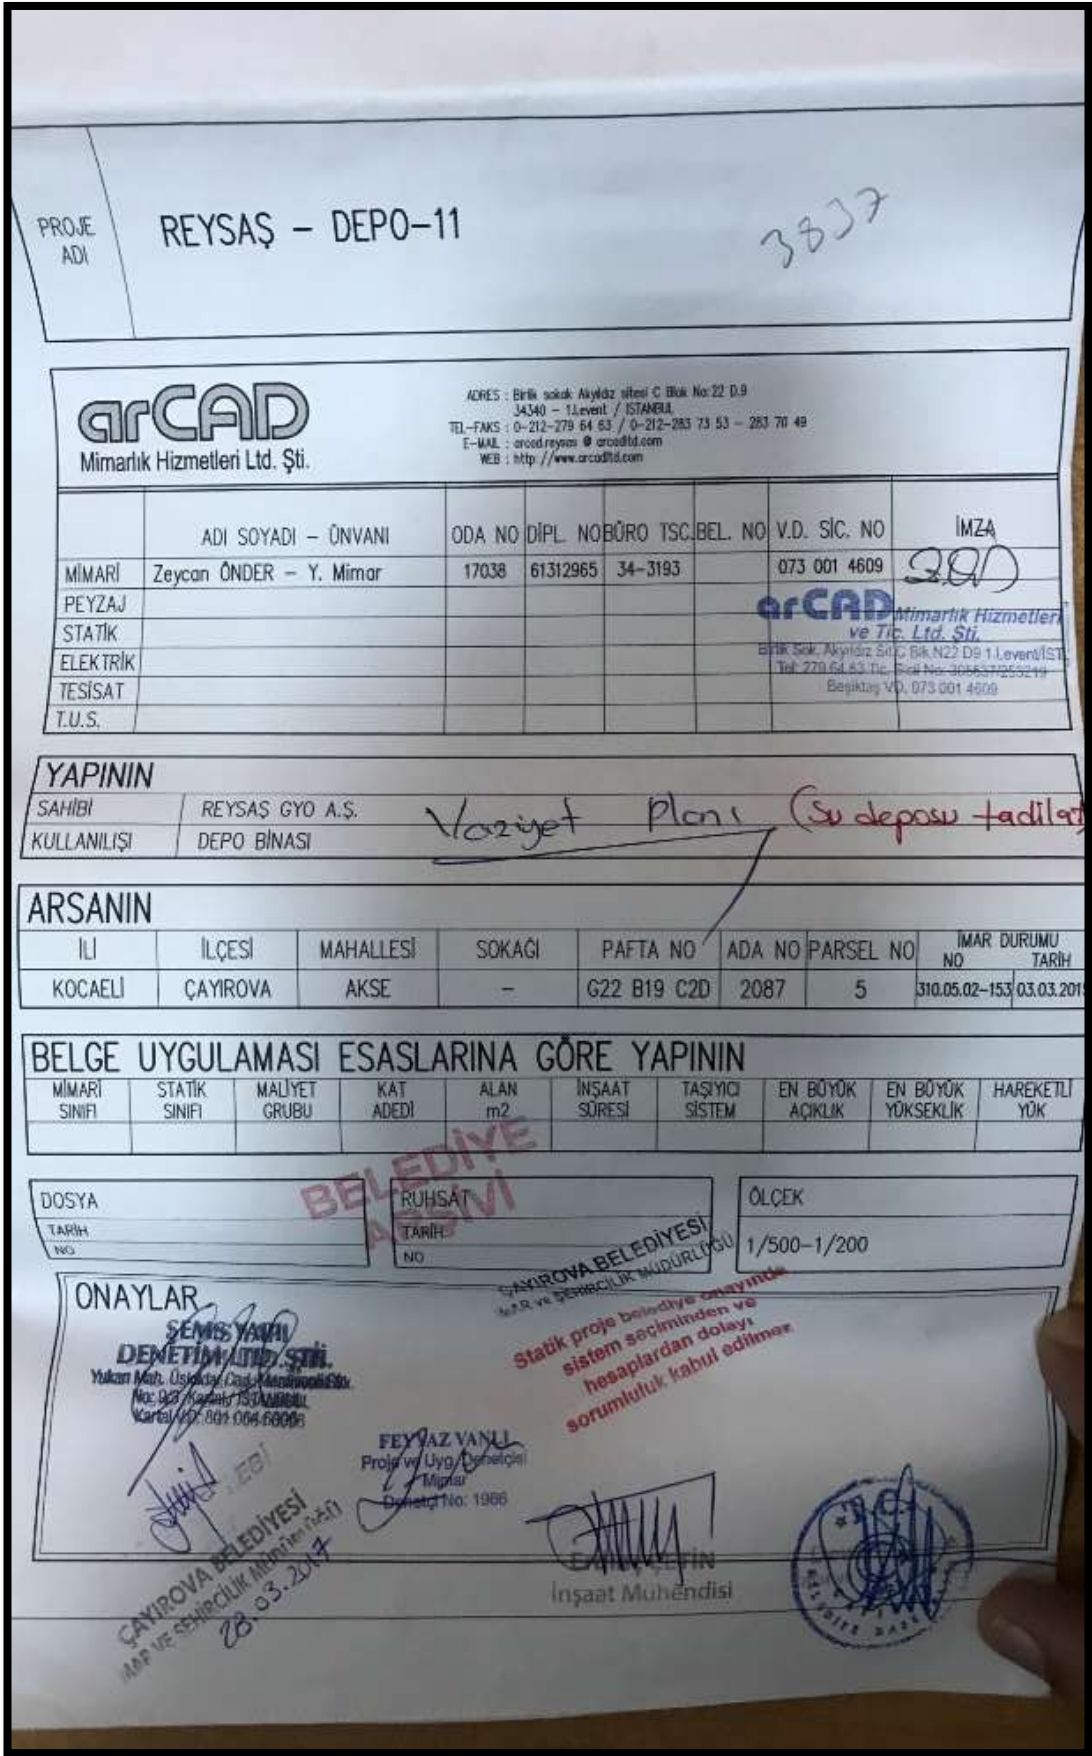 PROJE ADI
REYSAŞ - DEPO-11
3837
arCAD
Mimarlık Hizmetleri Ltd. Şti.
ADRES : Birlik sokak Akyıldız sitesi C Blok No:22 D.9
34340 - 1.Levent / İSTANBUL
TEL-FAKS : 0-212-279 64 63 / 0-212-283 73 53 - 283 70 49
E-MAIL : arcad.reysas @ arcadltd.com
WEB : http://www.arcadltd.com
ADI SOYADI - ÜNVANI ODA NO DİPL. NO BÜRO TSC. BEL. NO V.D. SİC. NO İMZA
MİMARİ Zeycan ÖNDER - Y. Mimar 17038 61312965 34-3193 073 001 4609
PEYZAJ
STATİK
ELEKTRİK
TESİSAT
T.U.S.
arCAD Mimarlık Hizmetleri
ve Tic. Ltd. Şti.
Birlik Sok. Akyıldız Sit. C Blk.N22 D9 1.Levent/İST.
Tel: 279 64 63 Tic. Sicil No: 305637/253219
Beşiktaş VD. 073 001 4609
YAPININ
SAHİBİ REYSAŞ GYO A.Ş.
KULLANILIŞI DEPO BİNASI
Vaziyet Planı (Su deposu tadilat)
ARSANIN
İLİ İLÇESİ MAHALLESİ SOKAĞI PAFTA NO ADA NO PARSEL NO İMAR DURUMU NO TARİH
KOCAELİ ÇAYIROVA AKSE - G22 B19 C2D 2087 5 310.05.02-153 03.03.201
BELGE UYGULAMASI ESASLARINA GÖRE YAPININ
MİMARİ SINIFI STATİK SINIFI MALİYET GRUBU KAT ADEDİ ALAN m2 İNŞAAT SÜRESİ TAŞIYICI SİSTEM EN BÜYÜK AÇIKLIK EN BÜYÜK YÜKSEKLİK HAREKETLİ YÜK
BELEDİYE
ARŞİVİ
DOSYA
TARİH
NO
RUHSAT
TARİH
NO
ÖLÇEK
1/500-1/200
ÇAYIROVA BELEDİYESİ
İMAR ve ŞEHİRCİLİK MÜDÜRLÜĞÜ
Statik proje belediye onayında
sistem seçiminden ve
hesaplardan dolayı
sorumluluk kabul edilmez
ONAYLAR
ŞEMS YAPI
DENETİM LTD. ŞTİ.
FEYYAZ VANLI
Proje ve Uyg. Denetçisi
Mimar
Denetçi No: 1966
ÇAYIROVA BELEDİYESİ
İMAR VE ŞEHİRCİLİK Müdürlüğü
28.03.2017
İnşaat Mühendisi
T.C.